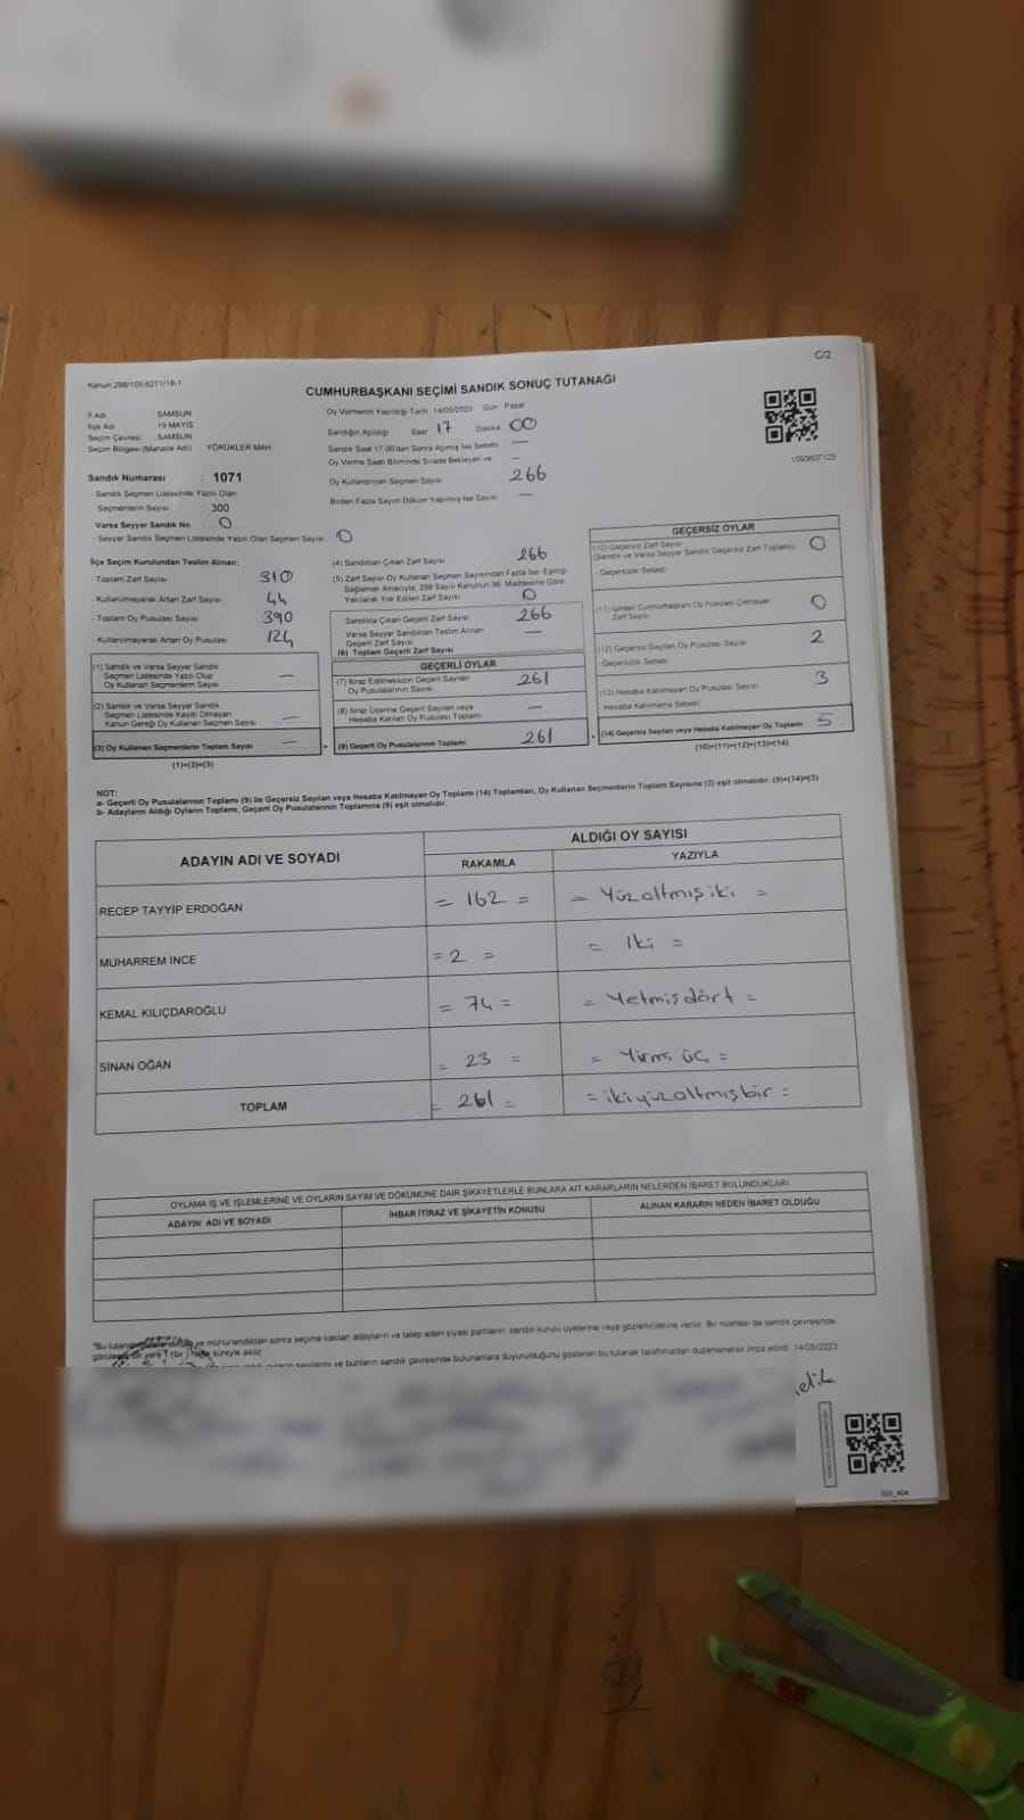 C/2
Kanun 298/105 6271/18-1
CUMHURBAŞKANI SEÇİMİ SANDIK SONUÇ TUTANAĞI
İl Adı SAMSUN
İlçe Adı 19 MAYIS
Seçim Çevresi SAMSUN
Seçim Bölgesi (Mahalle Adı) YÖRÜKLER MAH.
Oy Vermenin Yapıldığı Tarih 14/05/2023 Gün Pazar
Sandığın Açıldığı Saat 17 Dakika 00
Sandık Saat 17.00'den Sonra Açılmış İse Sebebi —
Oy Verme Saati Bitiminde Sırada Bekleyen ve —
Oy Kullanan Seçmen Sayısı 266
Birden Fazla Sayım Döküm Yapılmış İse Sayısı —
Sandık Numarası : 1071
- Sandık Seçmen Listesinde Yazılı Olan
Seçmenlerin Sayısı 300
Varsa Seyyar Sandık No 0
- Seyyar Sandık Seçmen Listesinde Yazılı Olan Seçmen Sayısı 0
İlçe Seçim Kurulundan Teslim Alınan;
- Toplam Zarf Sayısı 310
- Kullanılmayarak Artan Zarf Sayısı 44
- Toplam Oy Pusulası Sayısı 390
- Kullanılmayarak Artan Oy Pusulası 124
(1) Sandık ve Varsa Seyyar Sandık
Seçmen Listesinde Yazılı Olup
Oy Kullanan Seçmenlerin Sayısı —
(2) Sandık ve Varsa Seyyar Sandık
Seçmen Listesinde Kaydı Olmayan
Kanun Gereği Oy Kullanan Seçmen Sayısı —
(3) Oy Kullanan Seçmenlerin Toplam Sayısı —
(1)+(2)=(3)
(4) Sandıktan Çıkan Zarf Sayısı 266
(5) Zarf Sayısı Oy Kullanan Seçmen Sayısından Fazla İse, Eşitliği
Sağlamak Amacıyla, 298 Sayılı Kanunun 98. Maddesine Göre
Yakılarak Yok Edilen Zarf Sayısı 0
Sandıkta Çıkan Geçerli Zarf Sayısı 266
Varsa Seyyar Sandıktan Teslim Alınan
Geçerli Zarf Sayısı —
(6) Toplam Geçerli Zarf Sayısı
GEÇERLİ OYLAR
(7) İtiraz Edilmeksizin Geçerli Sayılan
Oy Pusulalarının Sayısı 261
(8) İtiraz Üzerine Geçerli Sayılan veya
Hesaba Katılan Oy Pusulası Toplamı —
(9) Geçerli Oy Pusulalarının Toplamı 261
GEÇERSİZ OYLAR
(10) Geçersiz Zarf Sayısı 0
(Sandık ve Varsa Seyyar Sandık Geçersiz Zarf Toplamı)
- Geçersizlik Sebebi
(11) İçinden Cumhurbaşkanı Oy Pusulası Çıkmayan
Zarf Sayısı 0
(12) Geçersiz Sayılan Oy Pusulası Sayısı 2
Geçersizlik Sebebi
(13) Hesaba Katılmayan Oy Pusulası Sayısı 3
Hesaba Katılmama Sebebi
(14) Geçersiz Sayılan veya Hesaba Katılmayan Oy Toplamı 5
(10)+(11)+(12)+(13)=(14)
NOT:
a- Geçerli Oy Pusulalarının Toplamı (9) ile Geçersiz Sayılan veya Hesaba Katılmayan Oy Toplamı (14) Toplamları, Oy Kullanan Seçmenlerin Toplam Sayısına (3) eşit olmalıdır. (9)+(14)=(3)
b- Adayların Aldığı Oyların Toplamı, Geçerli Oy Pusulalarının Toplamına (9) eşit olmalıdır.
ADAYIN ADI VE SOYADI ALDIĞI OY SAYISI
RAKAMLA YAZIYLA
RECEP TAYYİP ERDOĞAN = 162 = = Yüzaltmışiki =
MUHARREM İNCE = 2 = = İki =
KEMAL KILIÇDAROĞLU = 74 = = Yetmişdört =
SİNAN OĞAN = 23 = = Yirmi üç =
TOPLAM = 261 = = ikiyüzaltmışbir =
OYLAMA İŞ VE İŞLEMLERİNE VE OYLARIN SAYIM VE DÖKÜMÜNE DAİR ŞİKAYETLERLE BUNLARA AİT KARARLARIN NELERDEN İBARET BULUNDUKLARI
ADAYIN ADI VE SOYADI İHBAR İTİRAZ VE ŞİKAYETİN KONUSU ALINAN KARARIN NEDEN İBARET OLDUĞU
sonra seçime katılan adayların ve talep eden siyasi partilerin sandık kurulu üyelerine veya gözlemcilerine verilir. Bir nüshası da sandık çevresinde
süreyle asılır.
ve bunların sandık çevresinde bulunanlara duyurulduğunu gösteren bu tutanak tarafımızdan düzenlenerek imza edildi. 14/05/2023